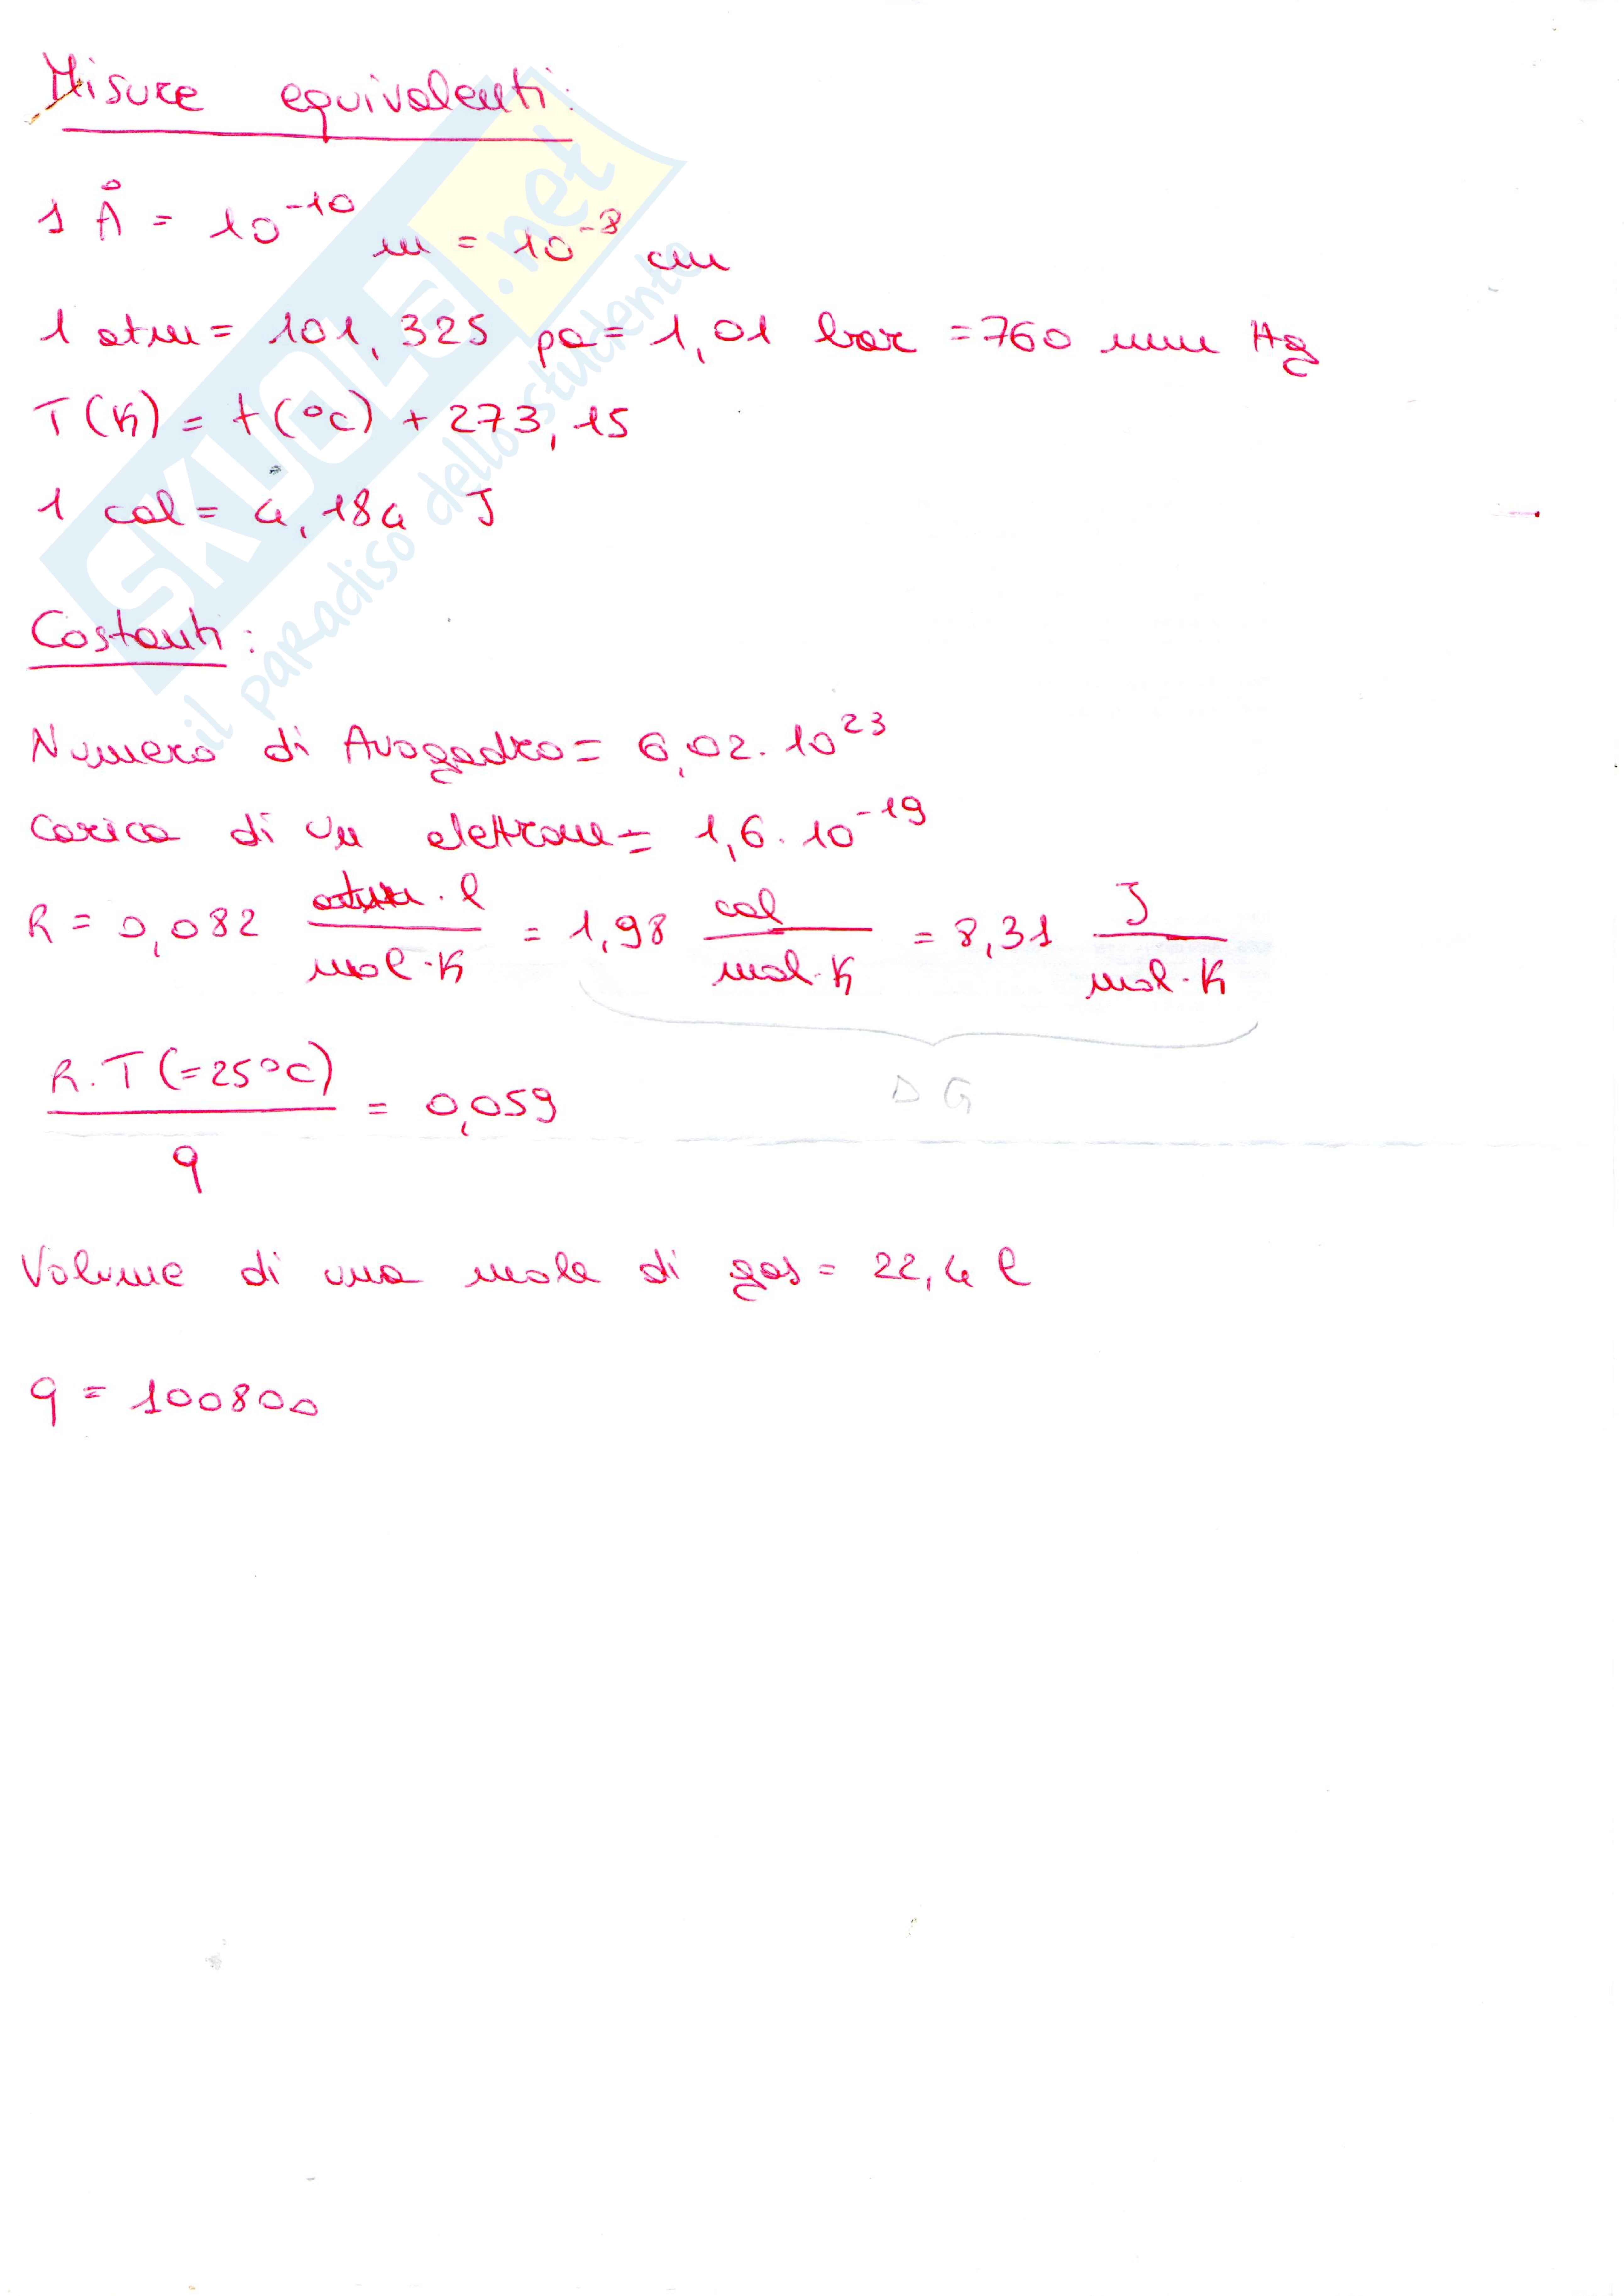 Misure equivalenti:
1 Å = 10⁻¹⁰ m = 10⁻⁸ cm
1 atm = 101,325 pa = 1,01 bar = 760 mm Hg
T(K) = t(°c) + 273,15
1 cal = 4,184 J
Costanti:
Numero di Avogadro = 6,02 · 10²³
Carica di un elettrone = 1,6 · 10⁻¹⁹
R = 0,082 atm · l / mol · K = 1,98 cal / mol · K = 8,31 J / mol · K
Δ G
R · T (=25°C) / q = 0,059
Volume di una mole di gas = 22,4 l
q = 100800
SKUOLA.net
il paradiso dello studente